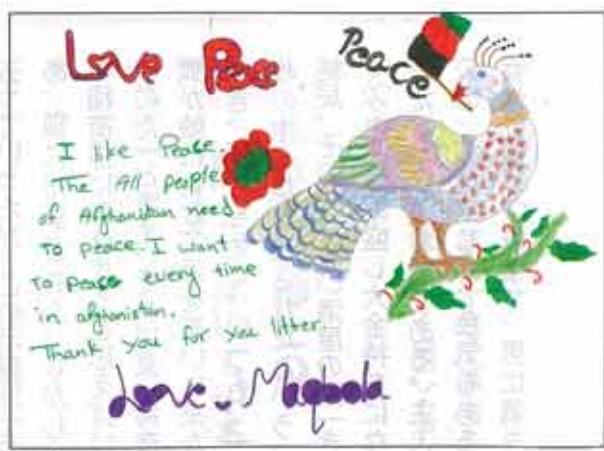 Love Peace
Peace
I like Peace.
The All people
of Afghanitan need
to peace. I want
to peace every time
in afghanistan.
Thank you for you litter.
Love. Maqbola